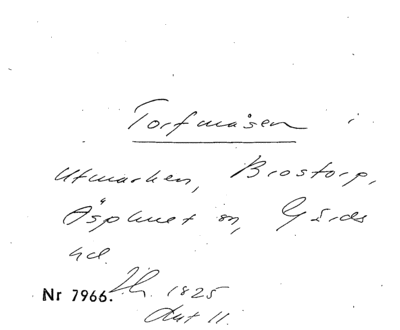 Torfmåsen i
Utmarken, Brostorp,
Äsphult sn, Gärds
hd.
Nr 7966. Th. 1825
Akt 11.